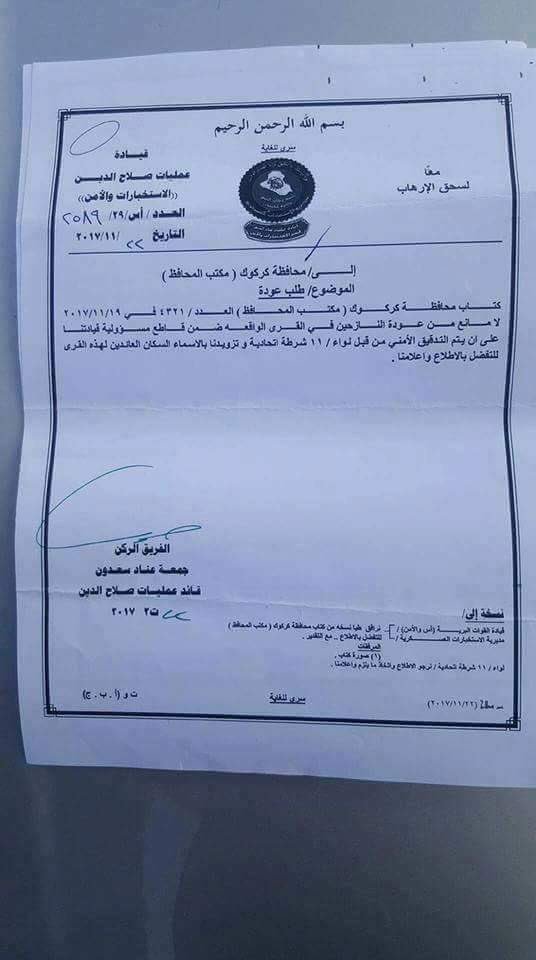 بسم الله الرحمن الرحيم
سري للغاية
قيادة
عمليات صلاح الدين
((الاستخبارات والأمن))
العدد / أس /٢٩/ ٢٥٨٩
التاريخ ٢٢ /٢٠١٧/١١
معاً
لسحق الإرهاب
إلـــى/ محافظة كركوك ( مكتب المحافظ )
الموضوع/ طلب عودة
كتاب محافظـــة كركــوك ( مكتــب المحــافظ ) العـدد / ٤٣٢١ فـي ٢٠١٧/١١/١٩
لا مـانع مـن عـودة النازحين في القرى الواقعه ضمن قاطع مسؤولية قيادتنـا
على ان يتم التدقيق الأمني من قبل لواء / ١١ شرطة اتحادية و تزويدنا بالاسماء السكان العائدين لهذه القرى
للتفضل بالاطلاع واعلامنا .
الفريق الركن
جمعة عناد سعدون
قائد عمليات صلاح الدين
٢٢ ت٢ ٢٠١٧
نسخة إلى/
قيادة القوات البريـة (أس والأمن) / نرافق طيا نسخه من كتاب محافظة كركوك ( مكتب المحافظ )
مديرية الاستخبارات العسكرية / للتفضل بالاطلاع .. مع التقدير .
المرفقات
(١) صورة كتاب .
لواء / ١١ شرطة اتحادية / نرجو الاطلاع واتخاذ ما يلزم واعلامنا .
(٢٠١٧/١١/٢٢)
سري للغاية
ت و (أ . ب . ج)